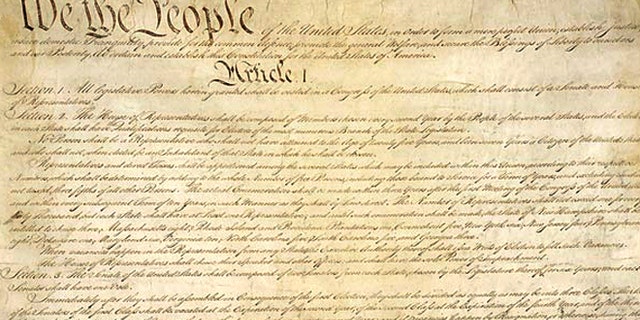 We the People of the United States, in Order to form a more perfect Union, establish Justice,
insure domestic Tranquility, provide for the common defence, promote the general Welfare, and secure the Blessings of Liberty to ourselves
and our Posterity, do ordain and establish this Constitution for the United States of America.
Article. I.
Section. 1. All legislative Powers herein granted shall be vested in a Congress of the United States, which shall consist of a Senate and House
of Representatives.
Section. 2. The House of Representatives shall be composed of Members chosen every second Year by the People of the several States, and the
in each State shall have Qualifications requisite for Electors of the most numerous Branch of the State Legislature.
No Person shall be a Representative who shall not have attained to the Age of twenty five Years, and been seven Years a Citizen of the United States,
and who shall not, when elected, be an Inhabitant of that State in which he shall be chosen.
Representatives and direct Taxes shall be apportioned among the several States which may be included within this Union, according to their respective
Numbers, which shall be determined by adding to the whole Number of free Persons, including those bound to Service for a Term of Years, and excluding Indians
not taxed, three fifths of all other Persons. The actual Enumeration shall be made within three Years after the first Meeting of the Congress of the United States,
and within every subsequent Term of ten Years, in such Manner as they shall by Law direct. The Number of Representatives shall not exceed one for every
thirty Thousand, but each State shall have at Least one Representative; and until such enumeration shall be made, the State of New Hampshire shall be
entitled to chuse three, Massachusetts eight, Rhode-Island and Providence Plantations one, Connecticut five, New-York six, New Jersey four, Pennsylvania
eight, Delaware one, Maryland six, Virginia ten, North Carolina five, South Carolina five, and Georgia three.
When vacancies happen in the Representation from any State, the Executive Authority thereof shall issue Writs of Election to fill such Vacancies.
The House of Representatives shall chuse their Speaker and other Officers; and shall have the sole Power of Impeachment.
Section. 3. The Senate of the United States shall be composed of two Senators from each State, chosen by the Legislature thereof, for six Years; and each
Senator shall have one Vote.
Immediately after they shall be assembled in Consequence of the first Election, they shall be divided as equally as may be into three Classes. The
of the Senators of the first Class shall be vacated at the Expiration of the second Year, of the second Class at the Expiration of the fourth Year, and of the